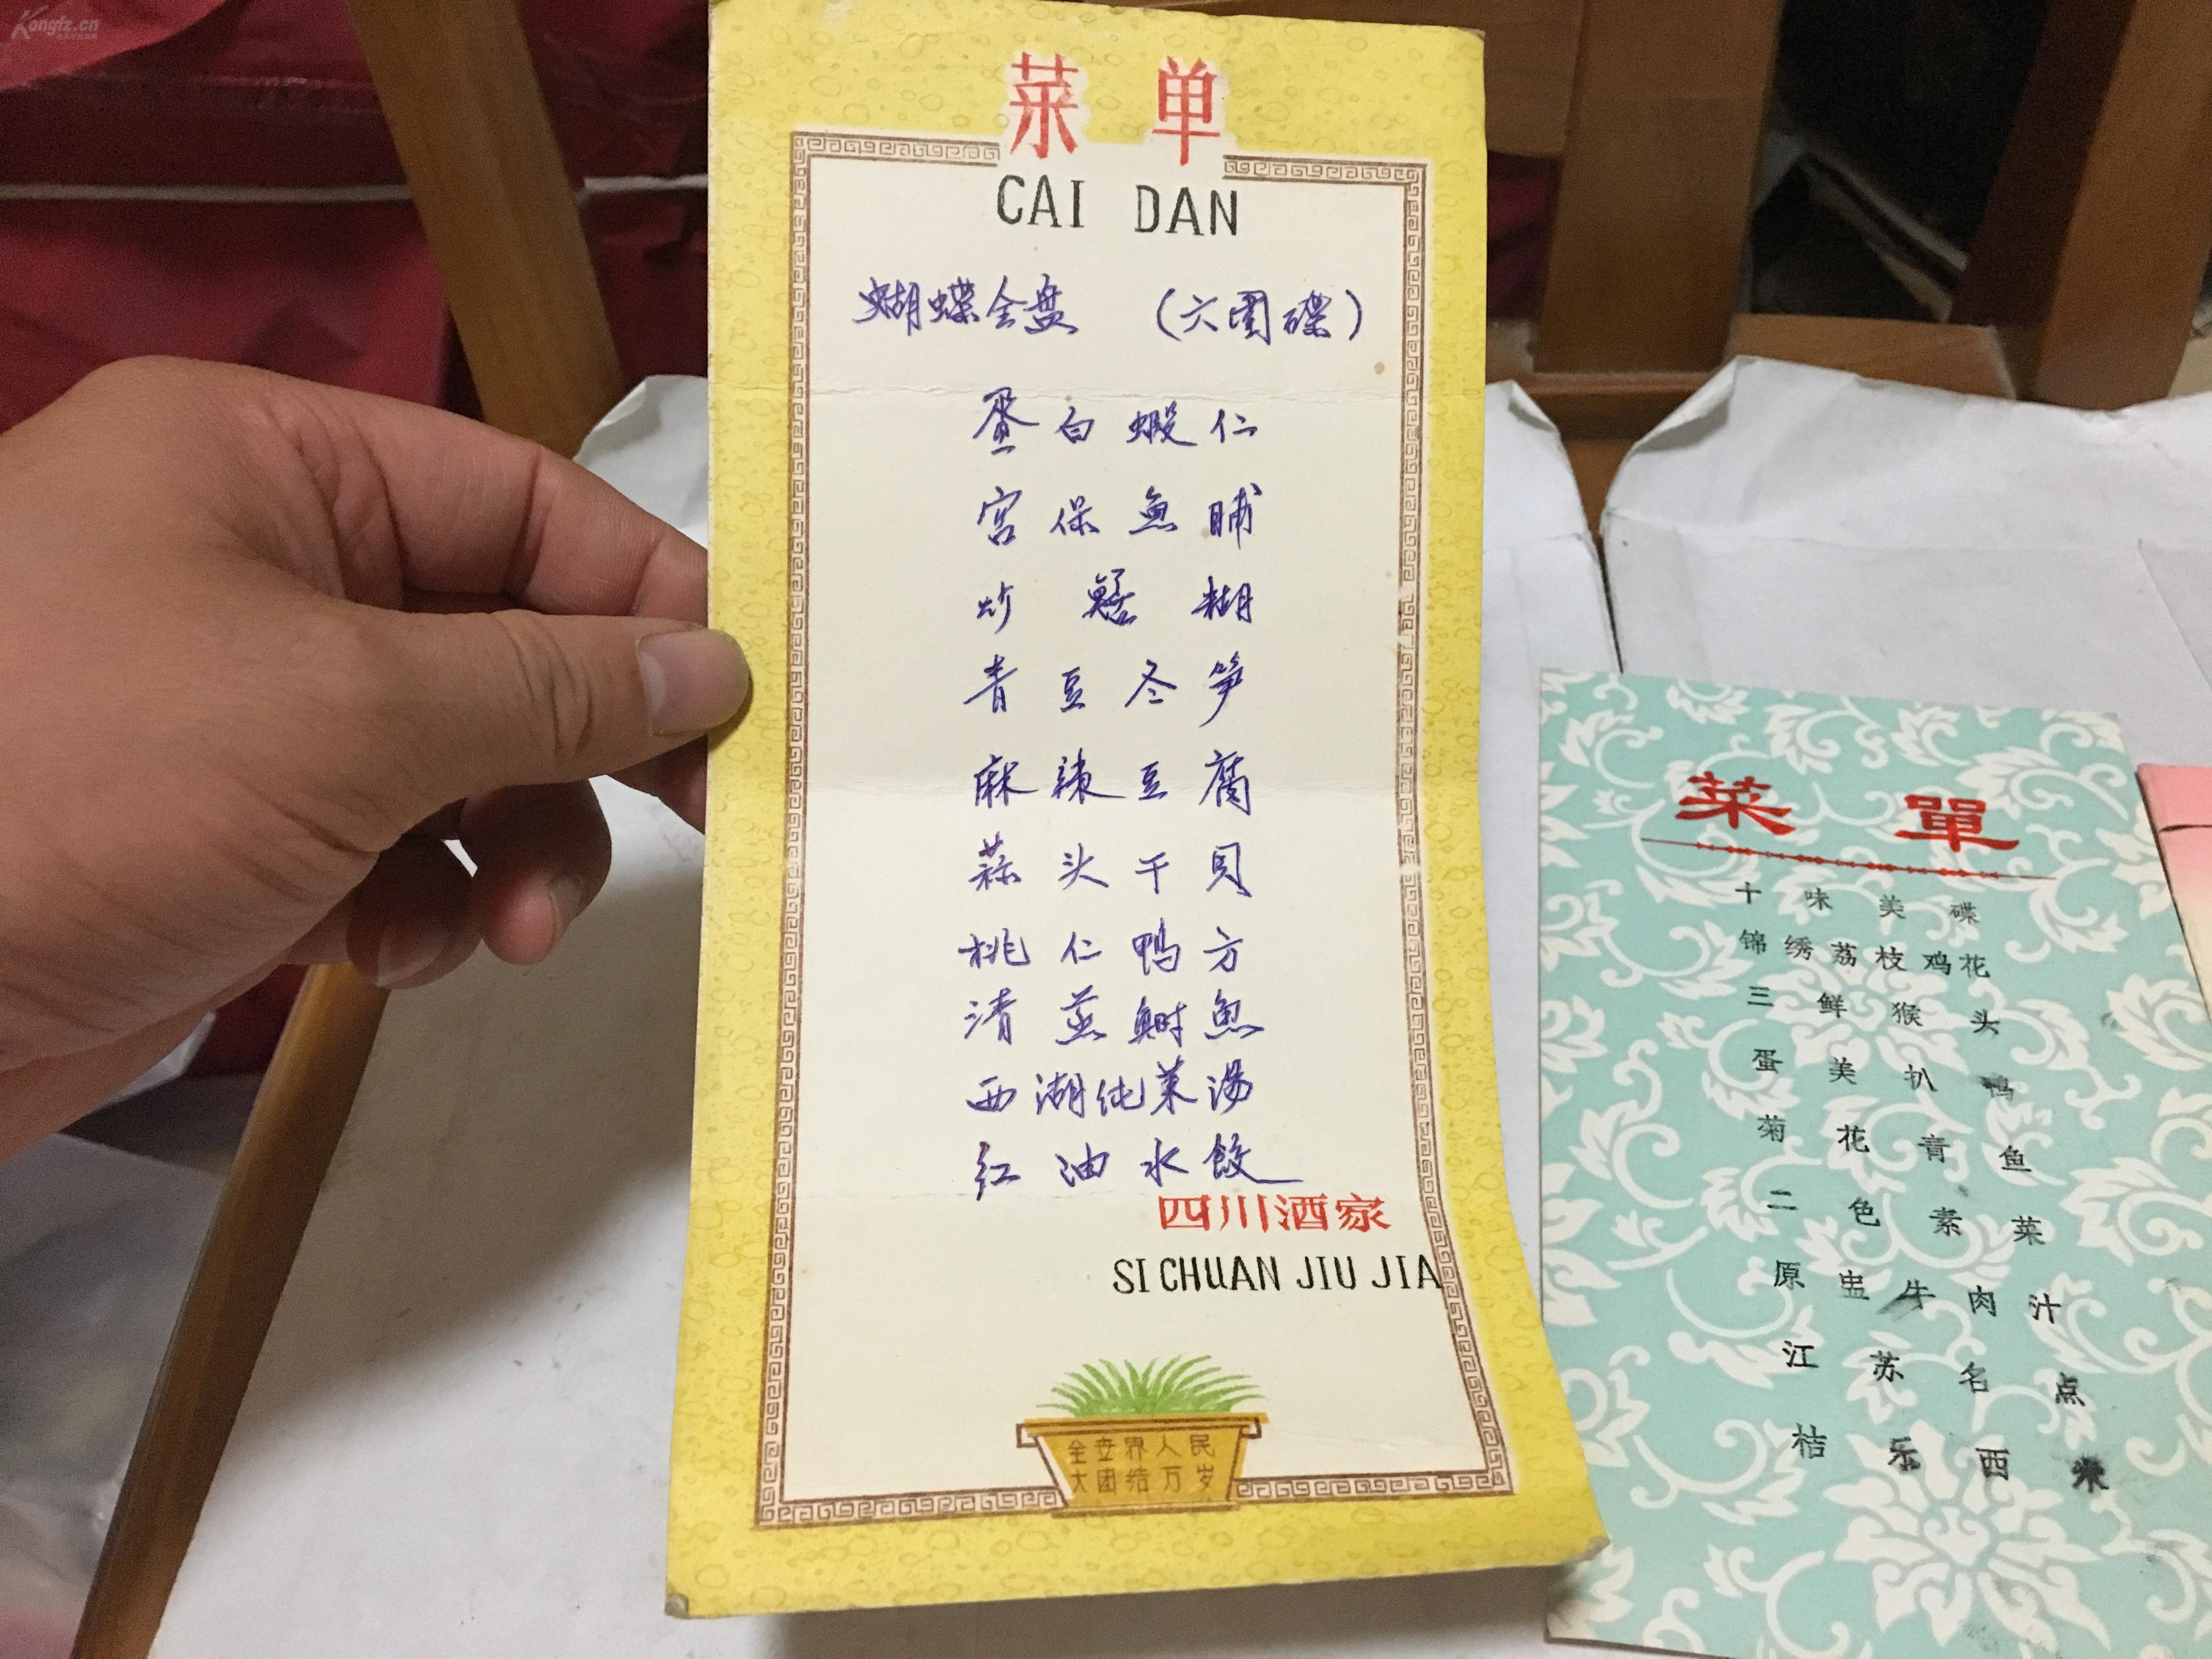 Kongfz.cn
菜单
CAI DAN
蝴蝶全盘 (六围碟)
蛋白蝦仁
宫保魚脯
炒鱔糊
青豆冬笋
麻辣豆腐
蒜头干贝
桃仁鸭方
清蒸鲥魚
西湖纯菜汤
红油水餃
四川酒家
SICHUAN JIU JIA
全世界人民
大团结万岁
菜單
十味美碟
锦绣荔枝鸡花
三鲜猴头
蛋美扒鸭
菊花青鱼
二色素菜
原盅牛肉汁
江苏名点
桔乐西米